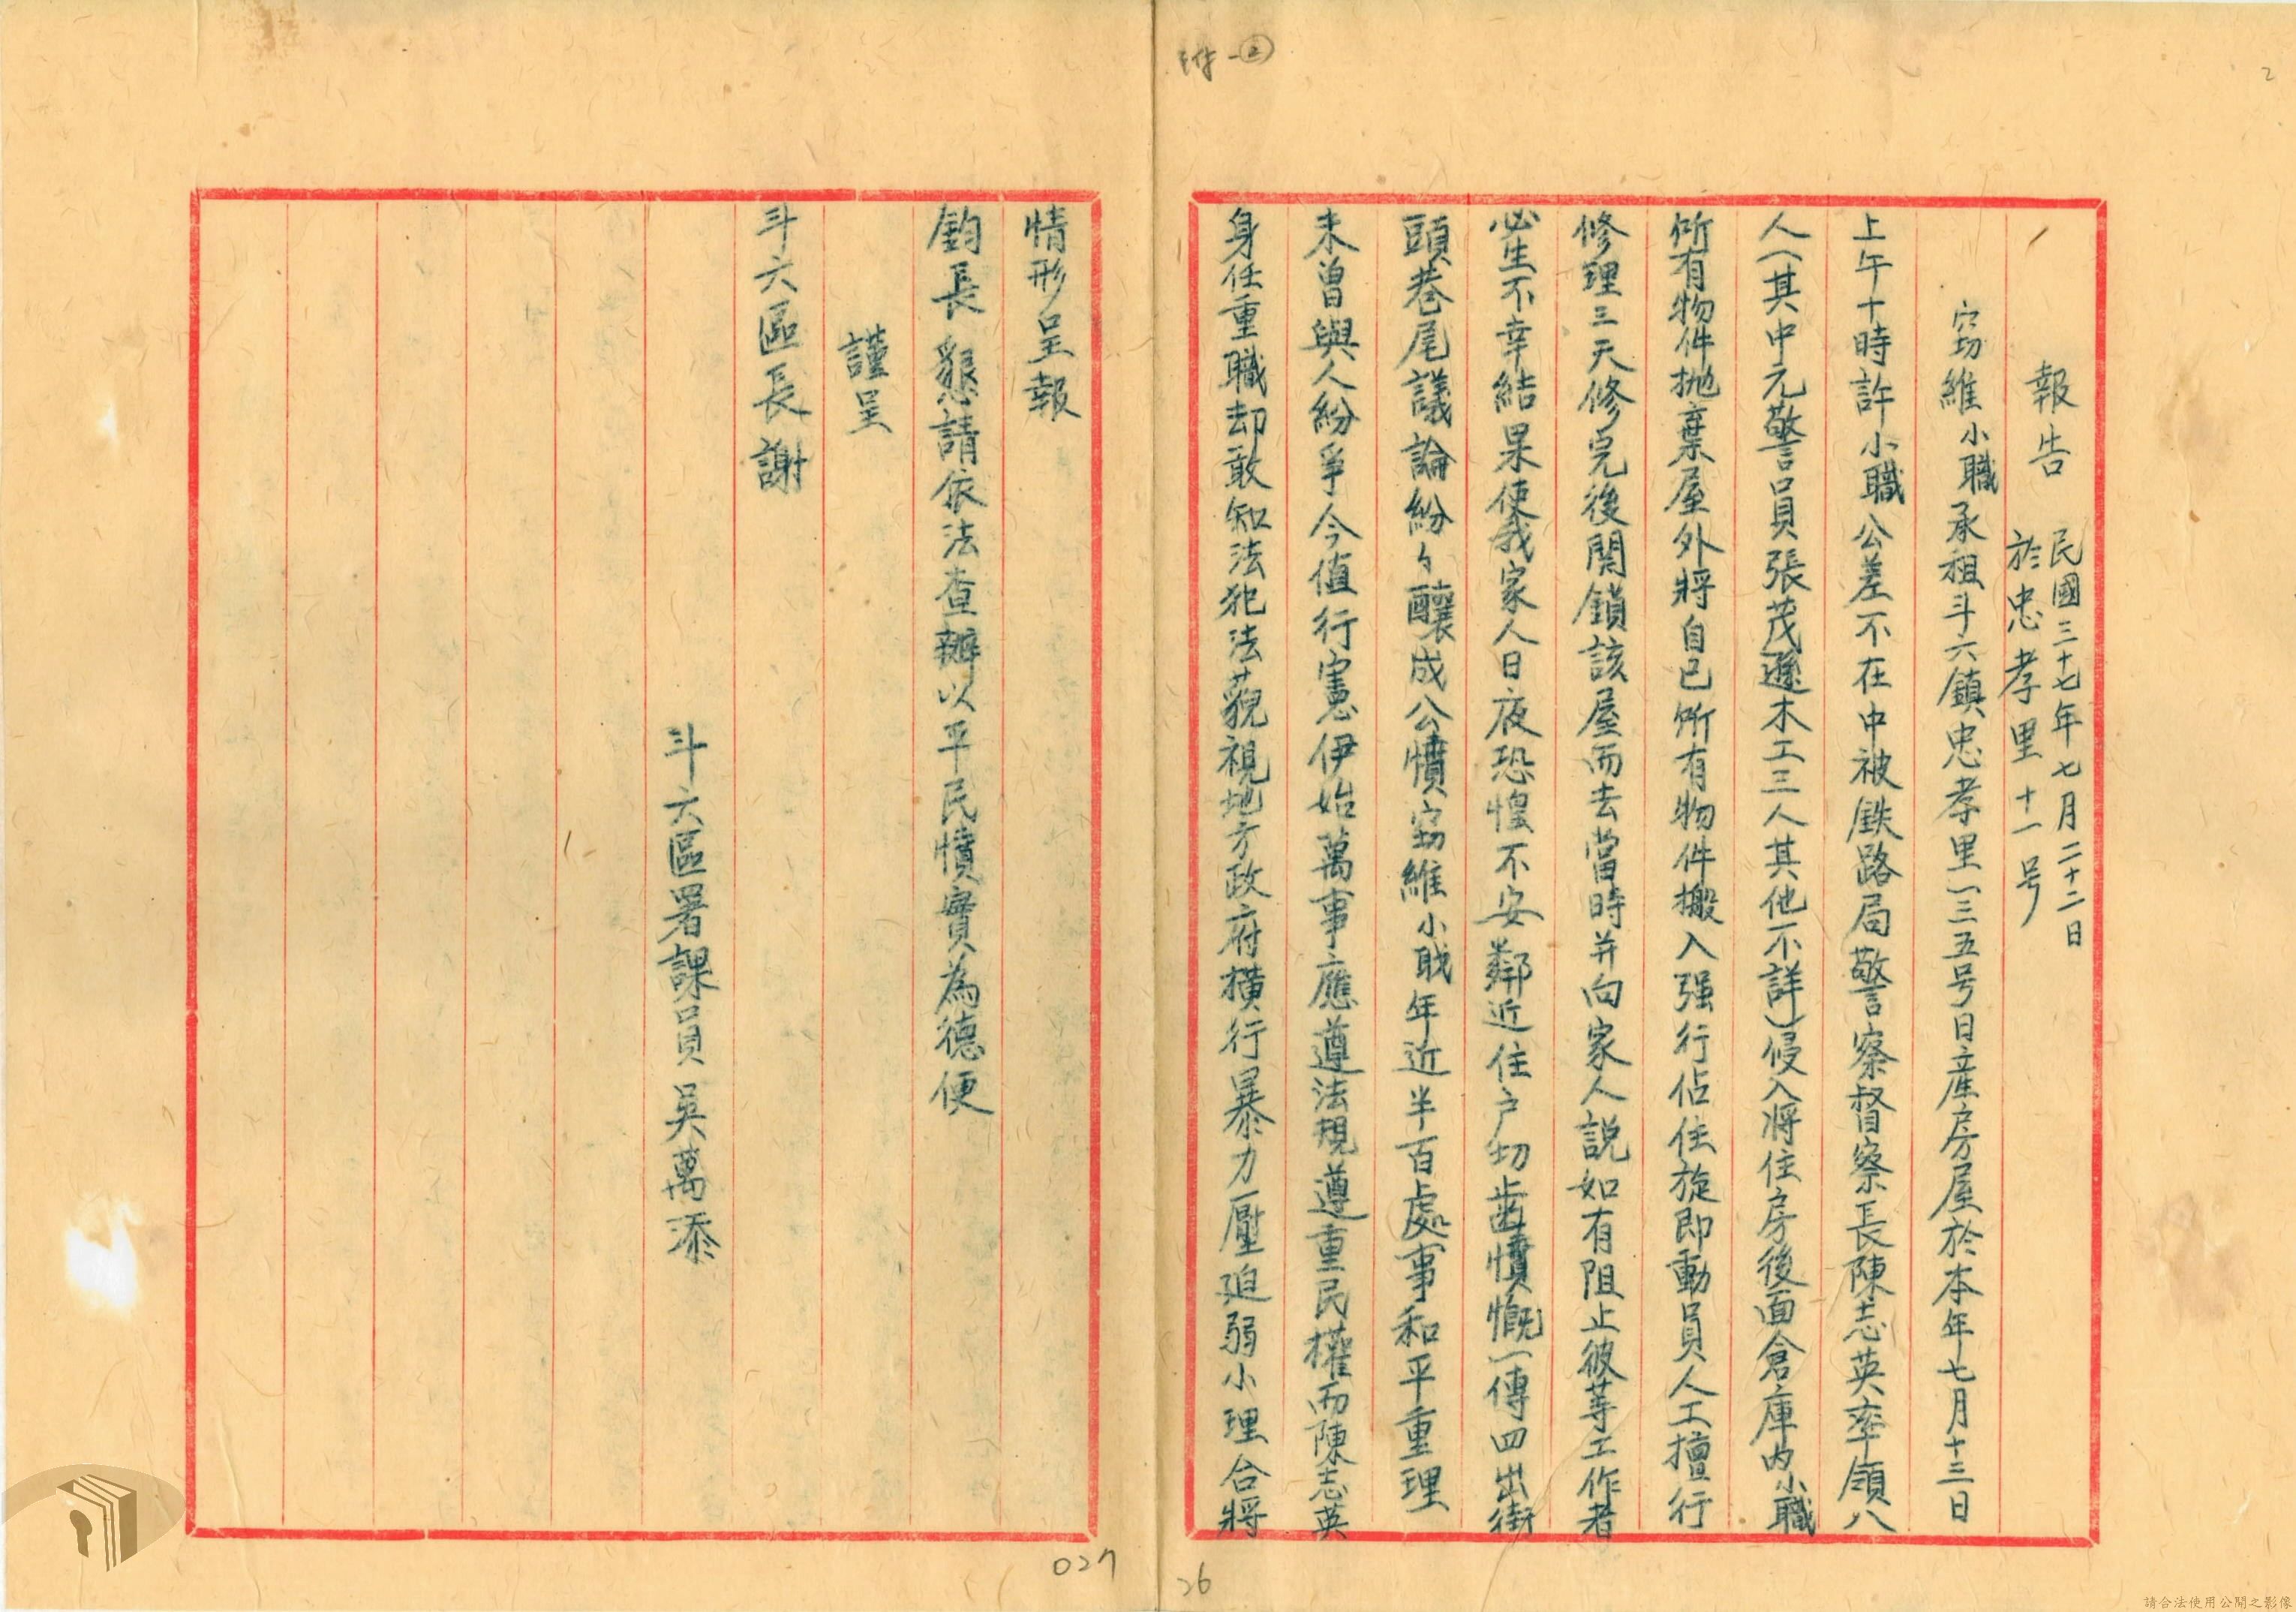 附-②
2
報告
民國三十七年七月二十二日
於忠孝里十一号
窃維小職承租斗六鎮忠孝里一三五号日産房屋於本年七月十三日
上午十時許小職公差不在中被鉄路局警察督察長陳志英率領八
人(其中元警員張茂遜木工三人其他不詳)侵入將住房後面倉庫内小職
所有物件抛棄屋外將自己所有物件搬入强行佔住旋即動員人工擅行
修理三天修完後関鎖該屋而去當時并向家人説如有阻止彼等工作者
必生不幸結果使我家人日夜恐惶不安鄰近住户切齒憤慨一傳四出街
頭巷尾議論紛々釀成公憤窃維小戝年近半百處事和平重理
未曽與人紛爭今值行憲伊始萬事應遵法規遵重民權而陳志英
身任重職却敢知法犯法藐視地方政府横行暴力壓迫弱小理合將
情形呈報
鈞長懇請依法查辦以平民憤實為德便
謹呈
斗六區長謝
斗六區署課員吳萬添
026
027
請合法使用公開之影像